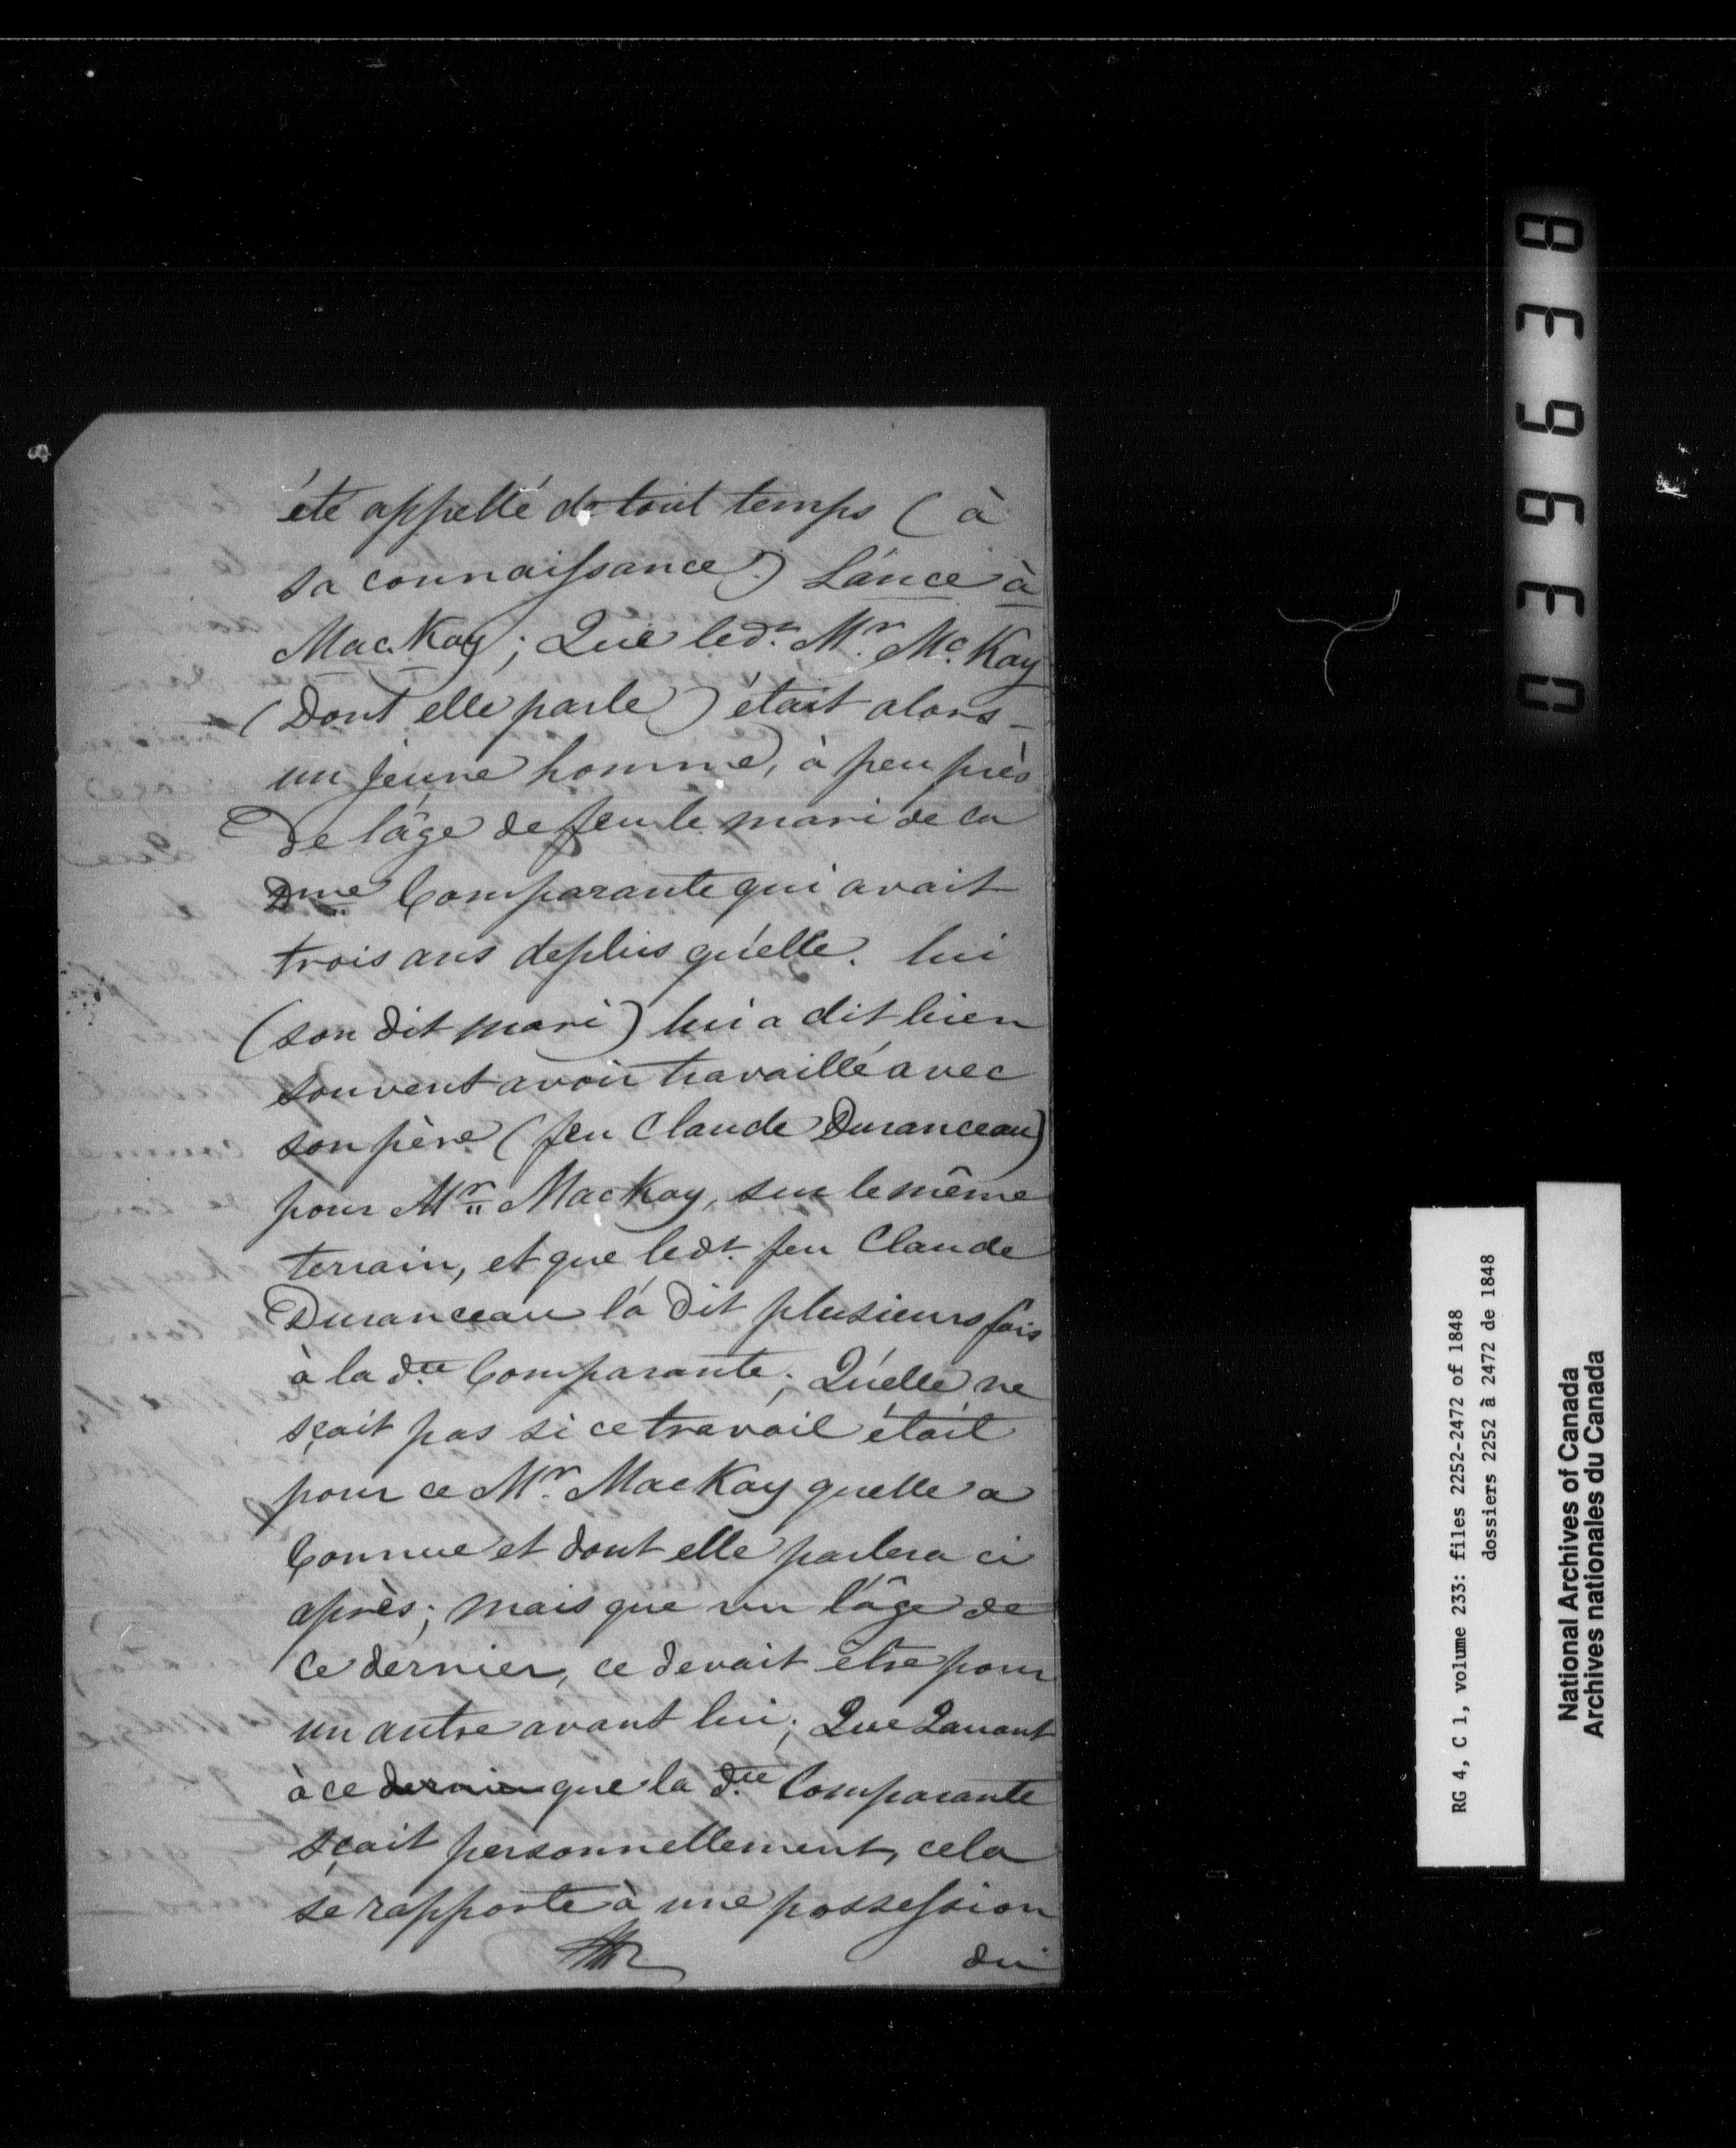 été appellé de tout temps (à
sa connaissance) L'ance à
MacKay; Que led.t M.r M.c Kay
(Dont elle parle) était alors
un jeune homme, à peu près
De l'âge de feu le mari de la
D.me Comparante qui avait
trois ans deplus qu'elle. lui
(son dit mari) lui a dit bien
souvent avoir travaillé avec
son père (feu Claude Duranceau)
pour M.r MacKay, sur le même
terrain, et que led.t feu Claude
Duranceau l'a dit plusieurs fois
à la d.te Comparante; Qu'elle ne
sçait pas si ce travail était
pour ce M.r MacKay qu'elle a
Connue et dont elle parlera ci
après; mais que vu l'âge de
Ce dernier, ce devait être pour
un autre avant lui; Que Quant
à ce dernier que la d.te Comparante
sçait personnellement, cela
se rapporte à une possession
du
039638
RG 4, C 1, volume 233: files 2252-2472 of 1848
dossiers 2252 à 2472 de 1848
National Archives of Canada
Archives nationales du Canada